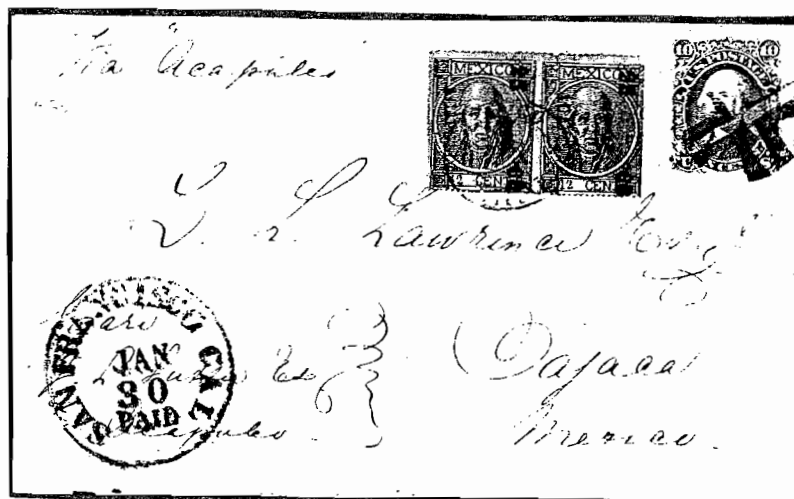 Via "Acapulco"
MEXICO MEXICO
12 CENT 12 CENT
L. L. Lawrence Esq.
SAN FRANCISCO CAL
JAN
30
PAID
Care
Acapulco
Oajaca
Mexico.